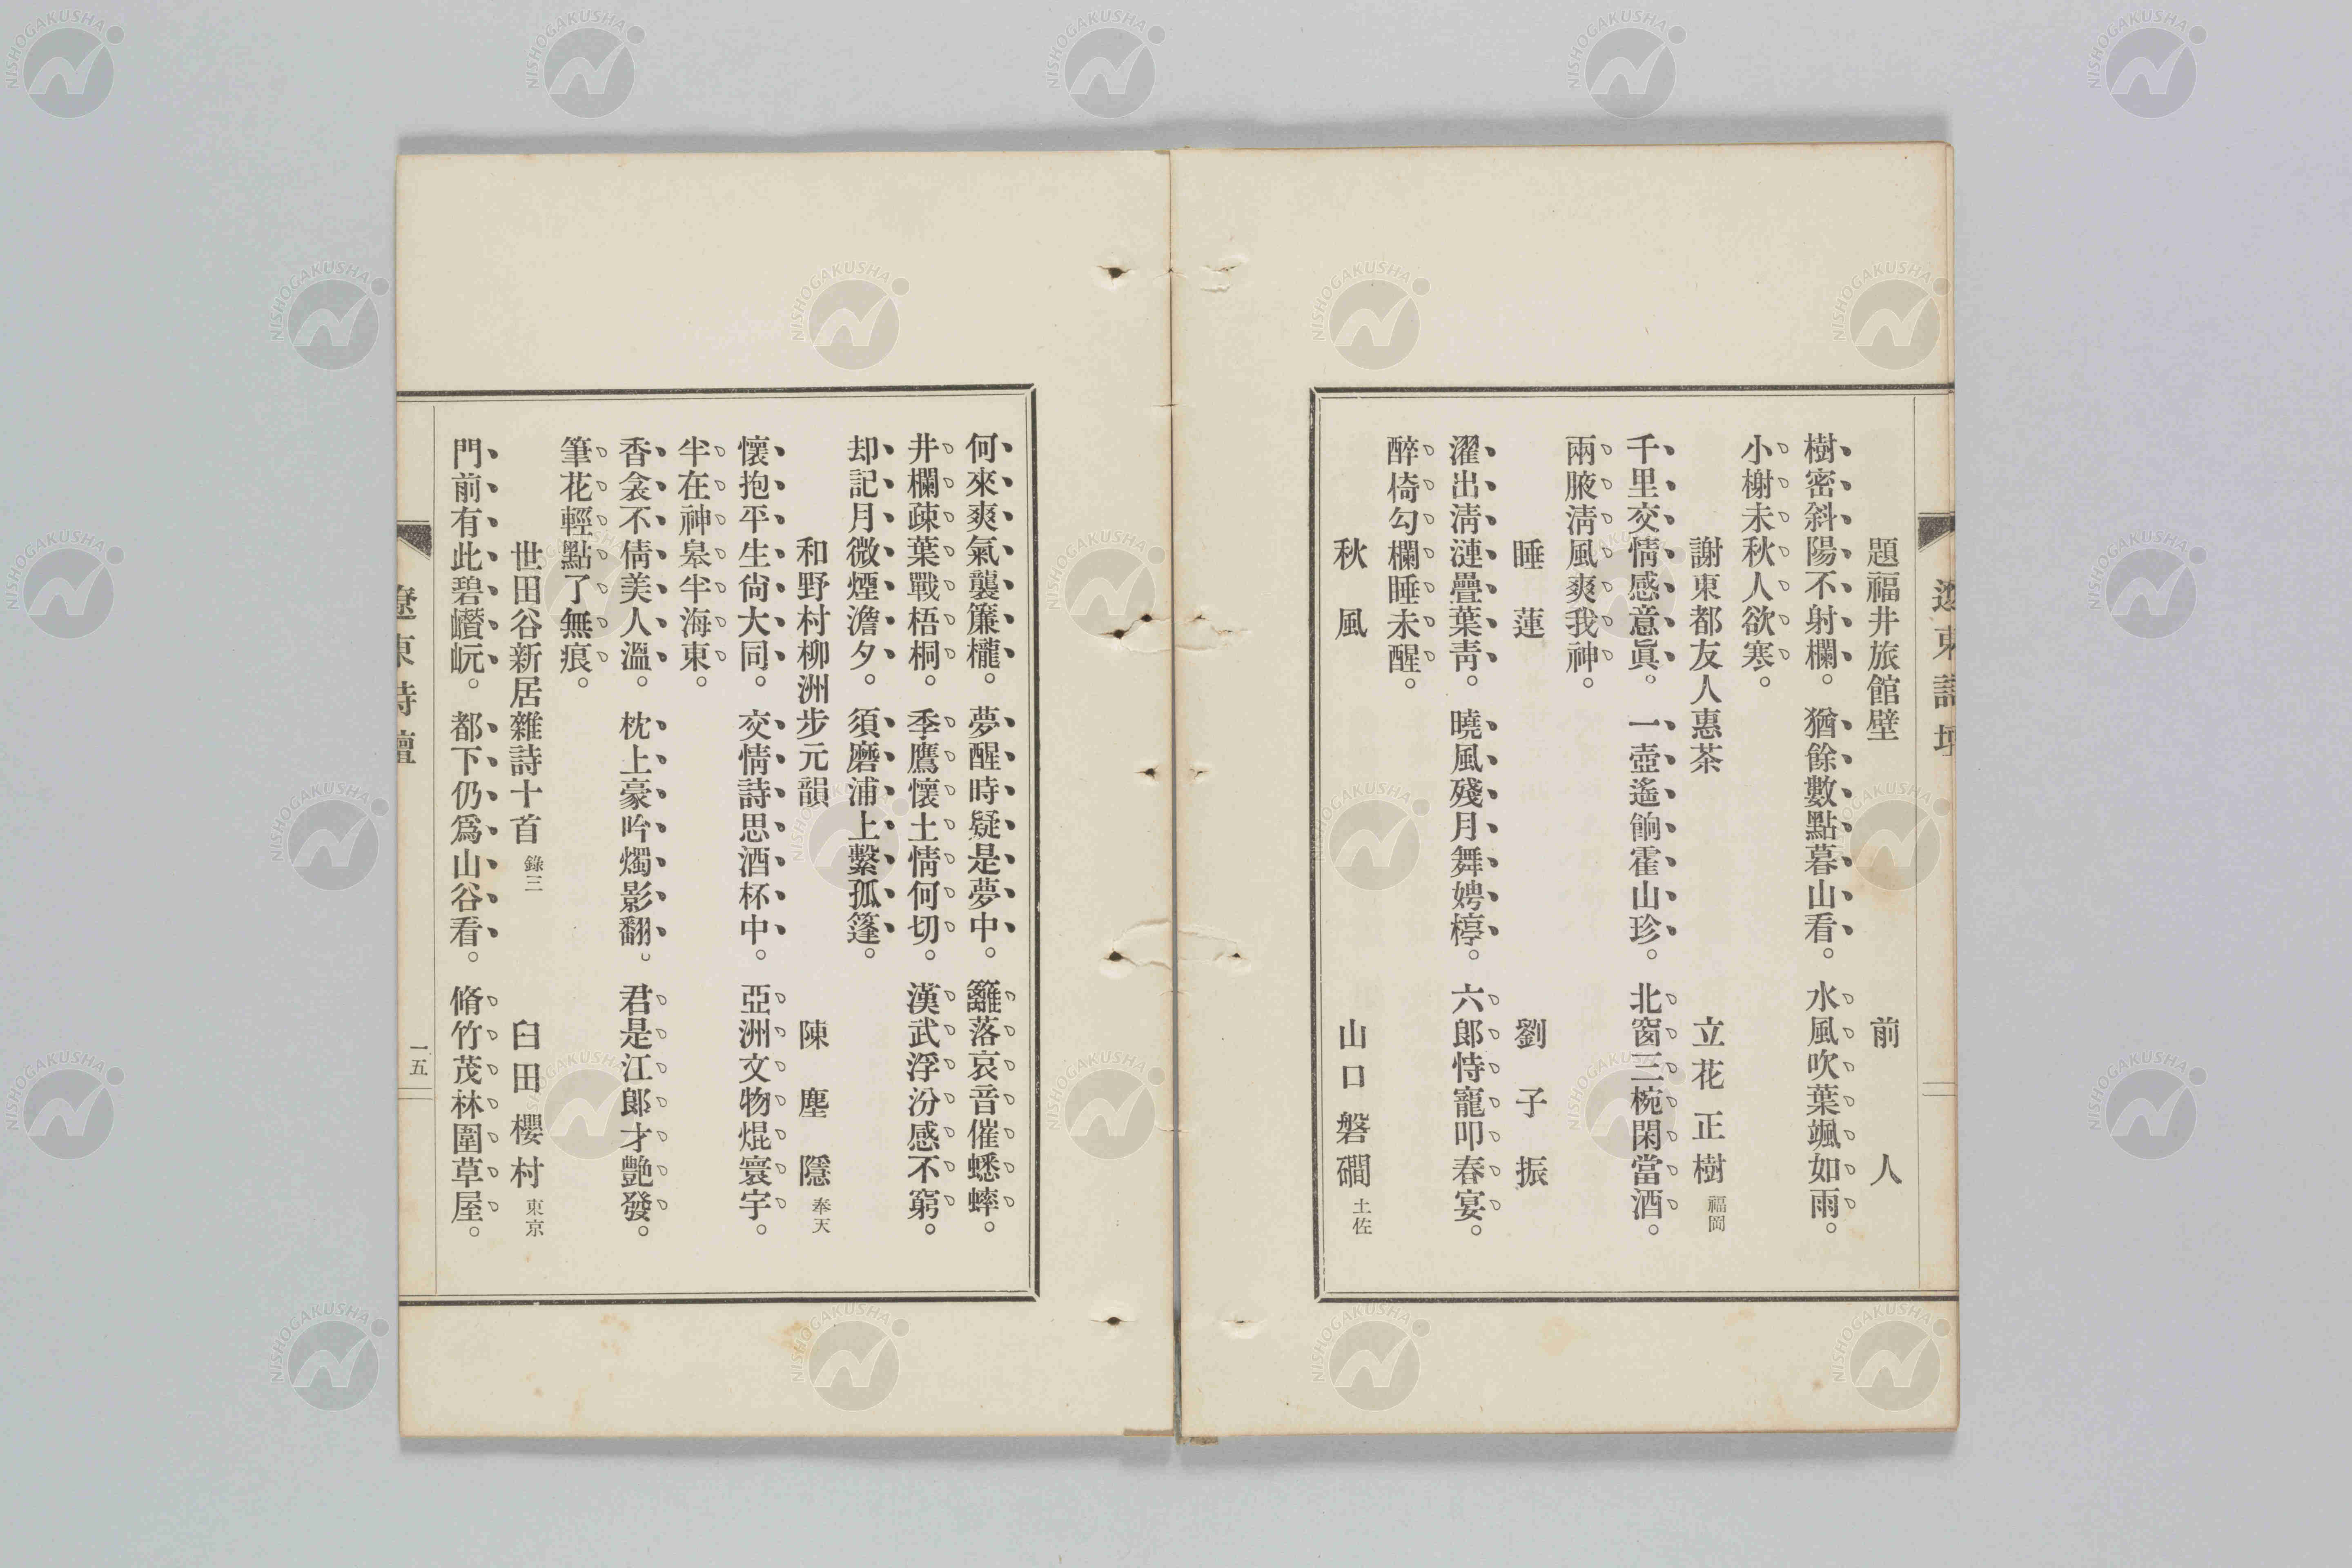 遼東詩壇
題福井旅館壁　前人
樹密斜陽不射欄。猶餘數點暮山看。水風吹葉颯如雨。
小榭未秋人欲寒。
謝東都友人惠茶　立花正樹 福岡
千里交情感意眞。一壺遙餉霍山珍。北窗三椀閑當酒。
兩腋淸風爽我神。
睡蓮　劉子振
濯出淸漣疊葉靑。曉風殘月舞娉楟。六郞恃寵叨春宴。
醉倚勾欄睡未醒。
秋風　山口磐磵 土佐
何來爽氣襲簾櫳。夢醒時疑是夢中。籬落哀音催蟋蟀。
井欄疎葉戰梧桐。季鷹懷土情何切。漢武浮汾感不窮。
却記月微煙澹夕。須磨浦上繫孤篷。
和野村柳洲步元韻　陳塵隱 奉天
懷抱平生尙大同。交情詩思酒杯中。亞洲文物焜寰宇。
半在神皋半海東。
香衾不倩美人溫。枕上豪吟燭影翻。君是江郞才艷發。
筆花輕點了無痕。
世田谷新居雜詩十首 錄三　臼田櫻村 東京
門前有此碧巑岏。都下仍爲山谷看。脩竹茂林圍草屋。
遼東詩壇
一五
NISHOGAKUSHA